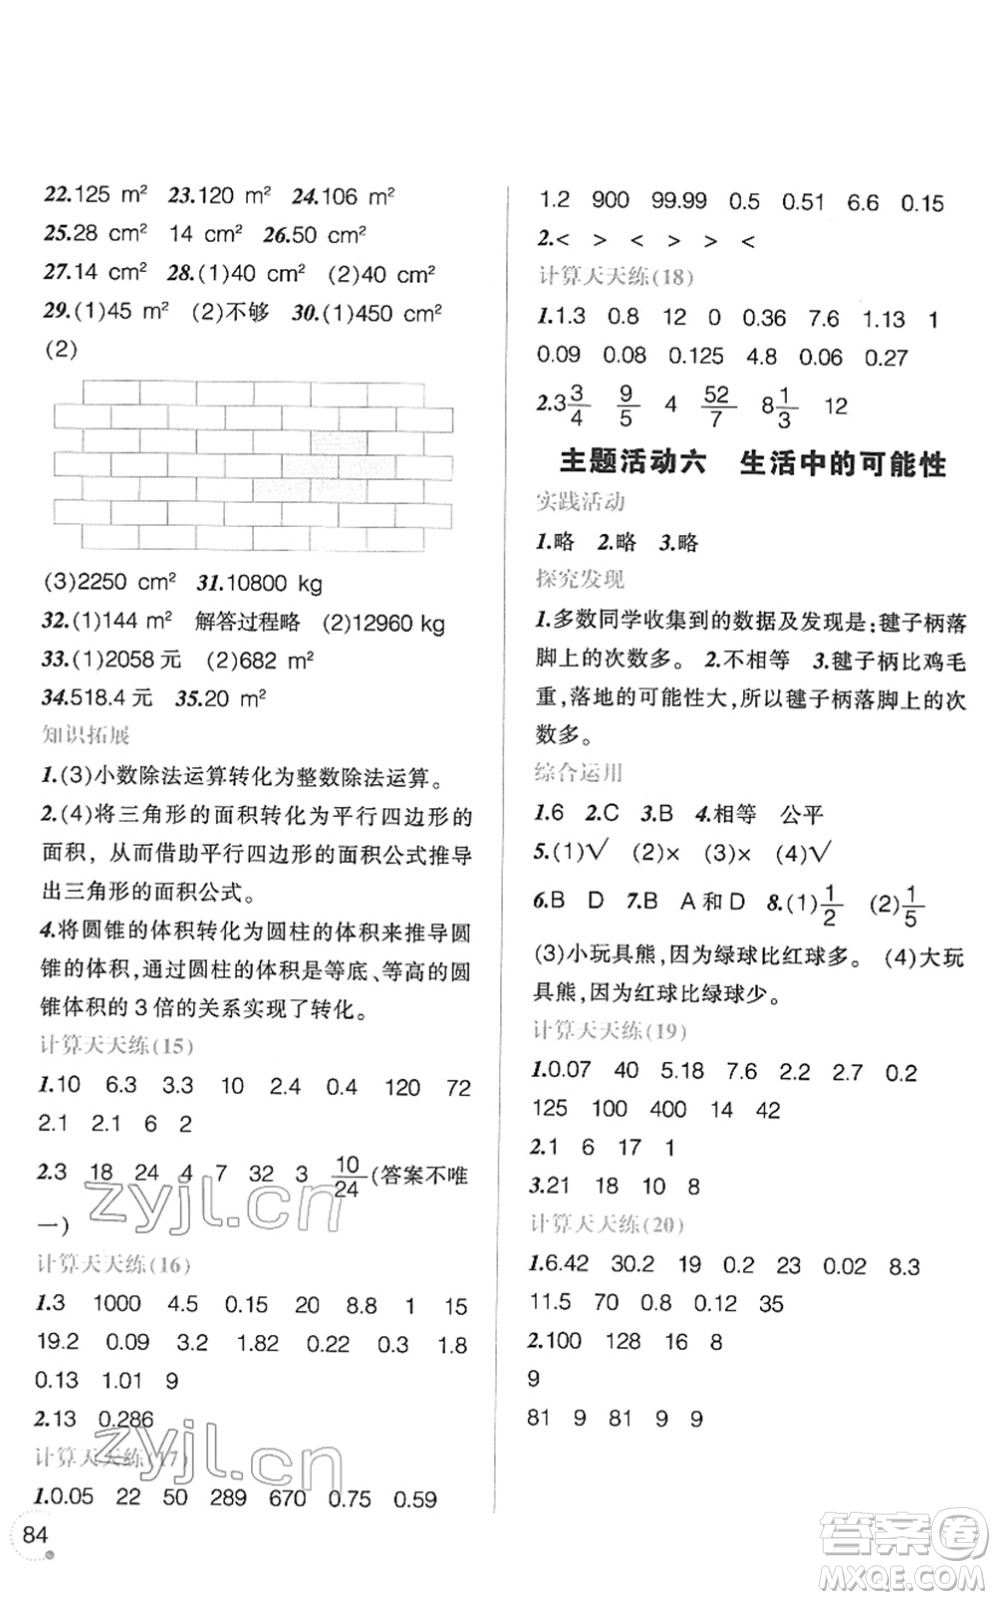 22.125 m²  23.120 m²  24.106 m²
25.28 cm²  14 cm²  26.50 cm²
27.14 cm²  28.(1)40 cm²  (2)40 cm²
29.(1)45 m²  (2)不够  30.(1)450 cm²
(2)
(3)2250 cm²  31.10800 kg
32.(1)144 m²  解答过程略  (2)12960 kg
33.(1)2058 元  (2)682 m²
34.518.4 元  35.20 m²
知识拓展
1.(3)小数除法运算转化为整数除法运算。
2.(4)将三角形的面积转化为平行四边形的
面积，从而借助平行四边形的面积公式推导
出三角形的面积公式。
4.将圆锥的体积转化为圆柱的体积来推导圆
锥的体积，通过圆柱的体积是等底、等高的圆
锥体积的 3 倍的关系实现了转化。
计算天天练(15)
1.10  6.3  3.3  10  2.4  0.4  120  72
2.1  2.1  6  2
2.3  18  24  4  7  32  3  10/24(答案不唯
一)
计算天天练(16)
1.3  1000  4.5  0.15  20  8.8  1  15
19.2  0.09  3.2  1.82  0.02  0.3  1.8
0.13  1.01  9
2.13  0.286
计算天天练(17)
1.0.05  22  50  289  670  0.75  0.59
84
1.2  900  99.99  0.5  0.51  6.6  0.15
2.<  >  <  >  >  <
计算天天练(18)
1.1.3  0.8  12  0  0.36  7.6  1.13  1
0.09  0.08  0.125  4.8  0.06  0.27
2.3 3/4  9/5  4  52/7  8 1/3  12
主题活动六  生活中的可能性
实践活动
1.略  2.略  3.略
探究发现
1.多数同学收集到的数据及发现是：毽子柄落
脚上的次数多。 2.不相等  3.毽子柄比鸡毛
重，落地的可能性大，所以毽子柄落脚上的次
数多。
综合运用
1.6  2.C  3.B  4.相等  公平
5.(1)√  (2)×  (3)×  (4)√
6.B  D  7.B  A 和 D  8.(1)1/2  (2)1/5
(3)小玩具熊，因为绿球比红球多。 (4)大玩
具熊，因为红球比绿球少。
计算天天练(19)
1.0.07  40  5.18  7.6  2.2  2.7  0.2
125  100  400  14  42
2.1  6  17  1
3.21  18  10  8
计算天天练(20)
1.6.42  30.2  19  0.2  23  0.02  8.3
11.5  70  0.8  0.12  35
2.100  128  16  8
9
81  9  81  9  9
zyjl.cn
zyjl.cn
答案卷
MXQE.COM